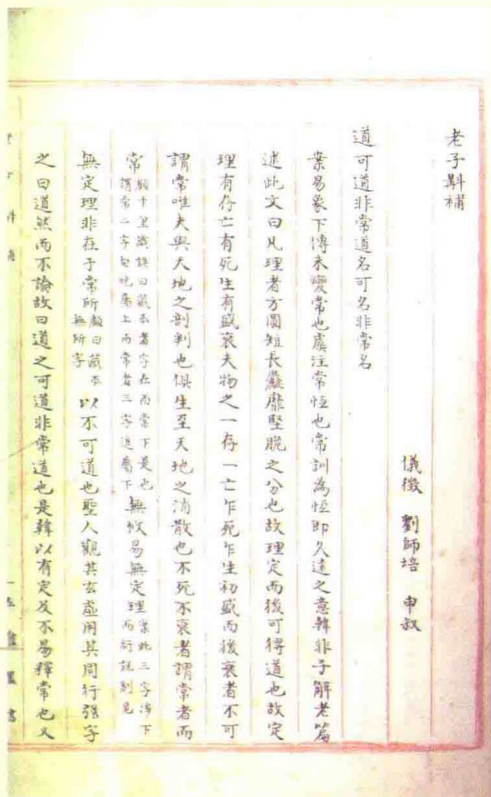 老子斠補
儀徵 劉師培 申叔
道可道非常道名可名非常名
案易象下傳未變常也虞注常恒也常訓為恒即久遠之意韓非子解老篇
述此文曰凡理者方圓短長麤靡堅脆之分也故理定而後可得道也故定
理有存亡有死生有盛衰夫物之一存一亡乍死乍生初盛而後衰者不可
謂常唯夫與天地之剖判也俱生至天地之消散也不死不衰者謂常者而
常顧千里識誤曰藏本者字在而常下是也
謂常二字句絶屬上而常者三字逗屬下無攸易無定理案此三字涉下
而衍説别見
無定理非在于常所顧曰藏本
無所字以不可道也聖人觀其玄虛用其周行强字
之曰道然而不論故曰道之可道非常道也是韓以有定及不易釋常也又
老子斠補
一 左盦叢書